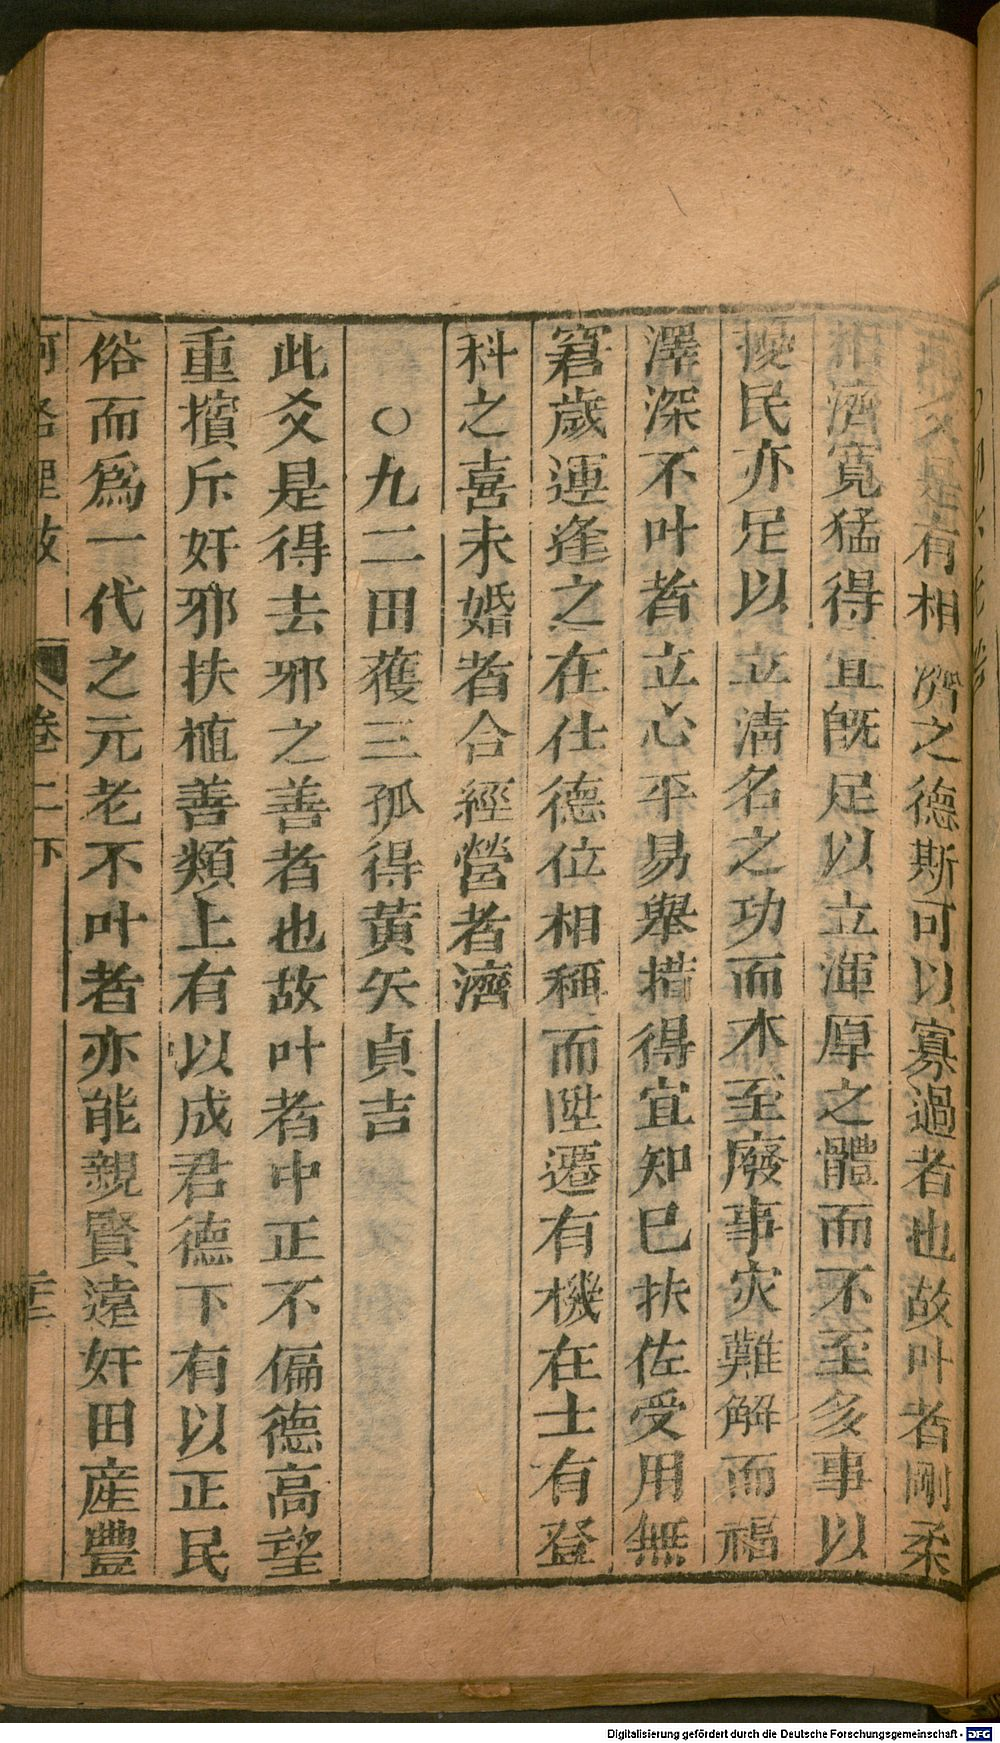 此爻是有相濟之德斯可以寡過者也故叶者剛柔
相濟寛猛得宜旣足以立渾厚之體而不至多事以
擾民亦足以立清名之功而不至廢事灾難解而福
澤深不叶者立心平易舉措得宜知已扶佐受用無
窘歲運逢之在仕德位相稱而陞遷有機在士有登
科之喜未婚者合經營者濟
○九二田獲三狐得黃矢貞吉
此爻是得去邪之善者也故叶者中正不偏德高望
重擯斥奸邪扶植善類上有以成君德下有以正民
俗而爲一代之元老不叶者亦能親賢遠奸田產豐
河洛理數 卷二下
Digitalisierung gefördert durch die Deutsche Forschungsgemeinschaft - DFG